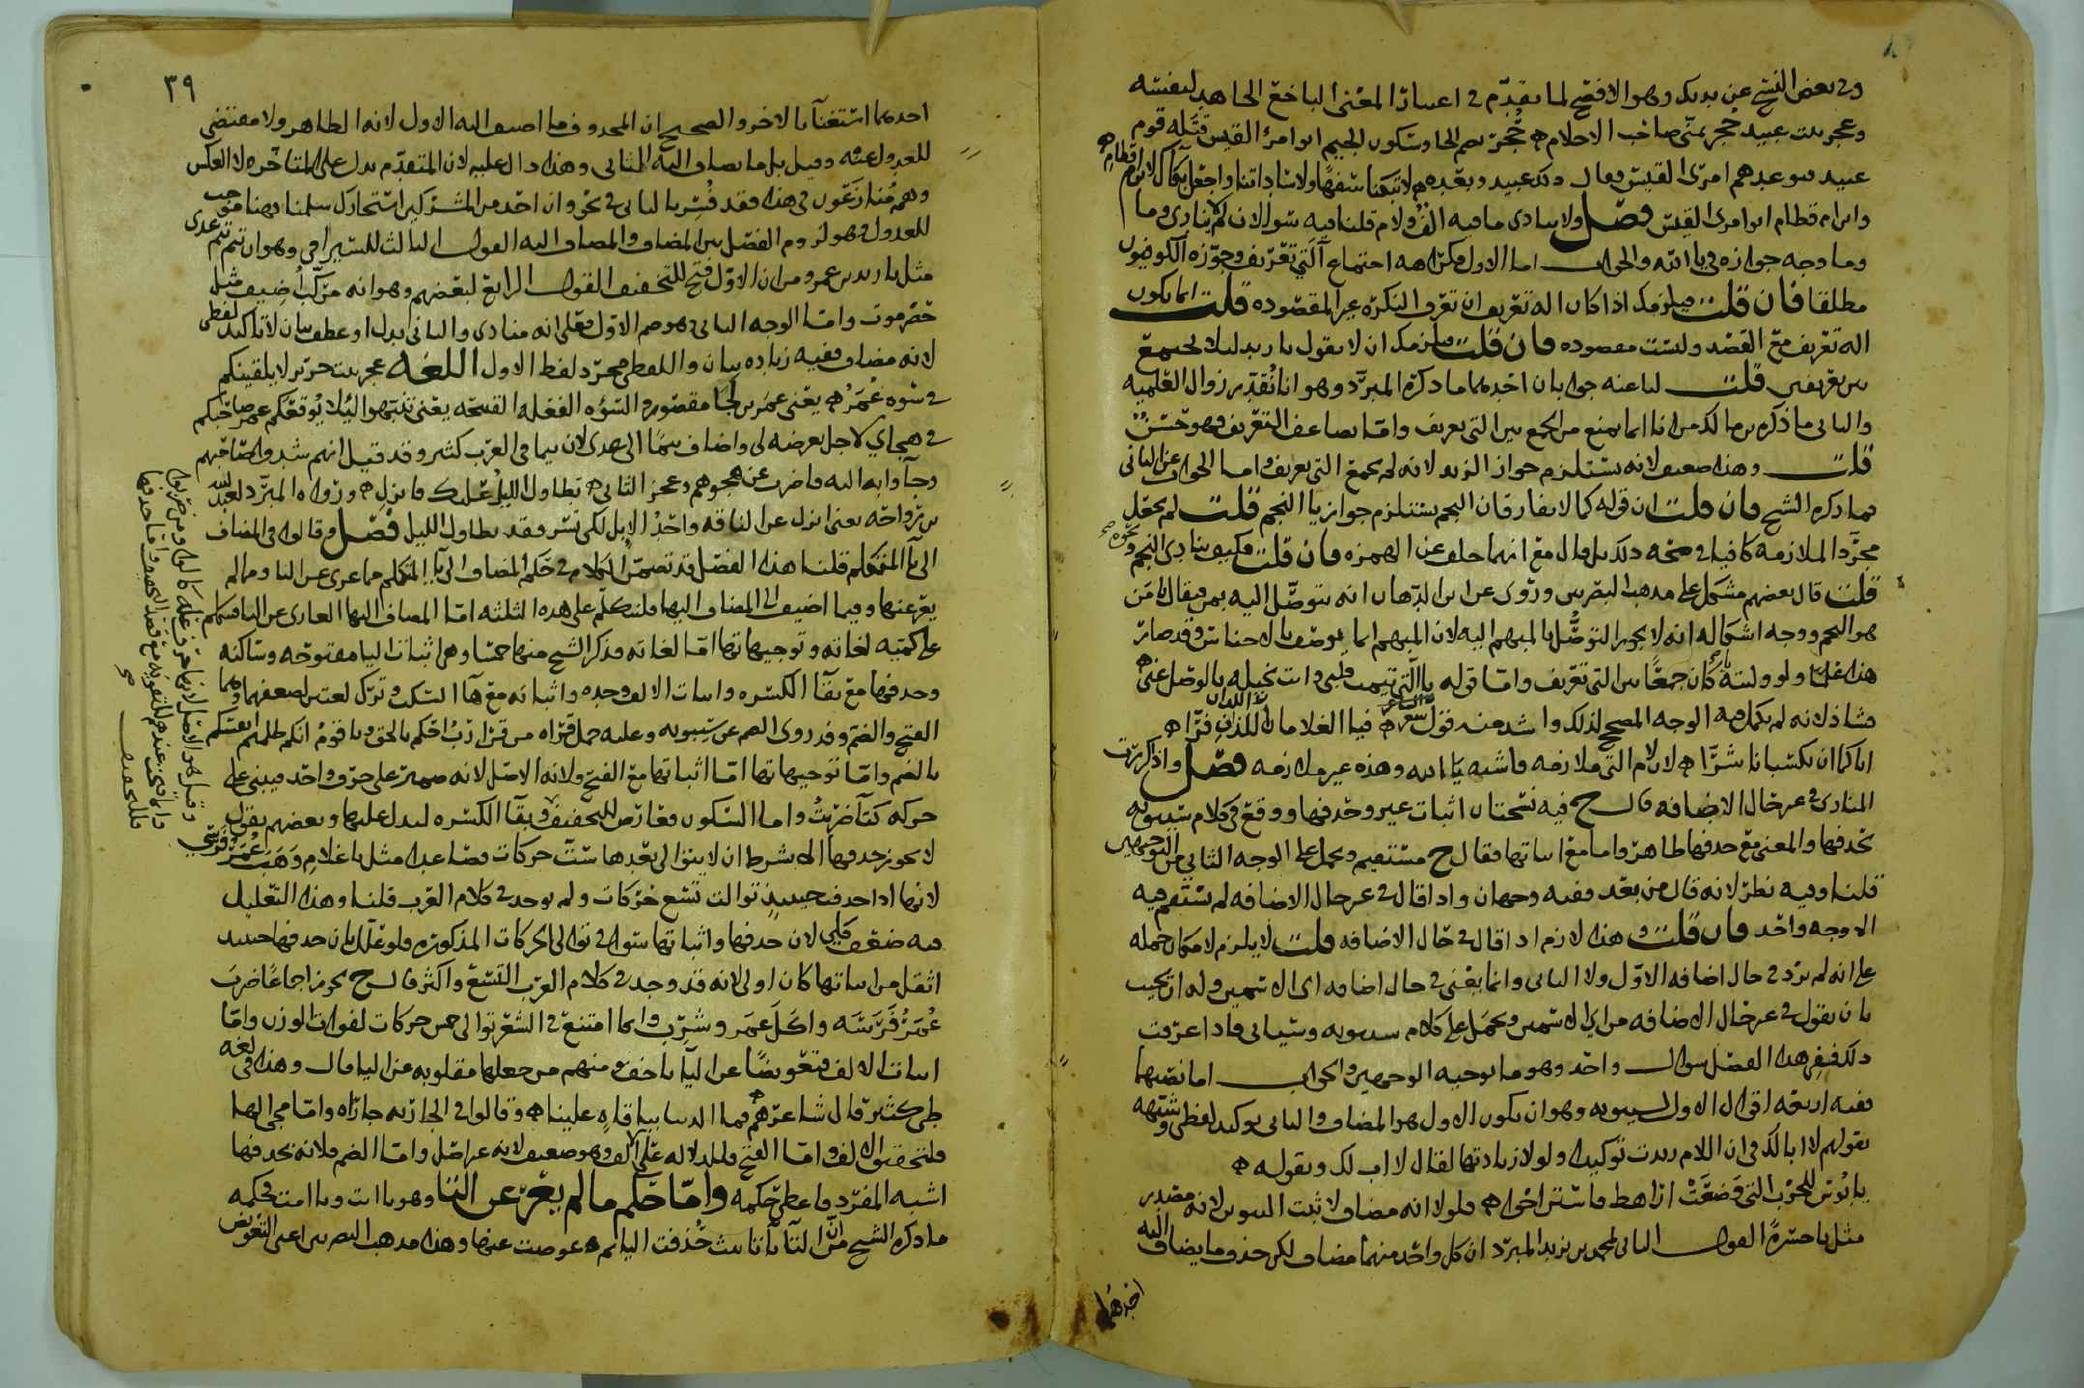 وفي بعض النسخ عن يديك وهو الافصح لما تقدم في اعتبار المعنى الباخع الجاهد لنفسه
وعجز بيت عبيد حجر تمنى صاحب الاحلام ه حُجر بضم الحا وسكون الجيم ابو امرئ القيس قتله قوم
عبيد فتوعدهم امرئ القيس فقال ذلك عبيد وبعده ه لا تبكنا سفها ولا ساداتنا واجعل بكاك لابن ام قطام ه
وابن ام قطام ابو امرئ القيس فصل ولا ينادى ما فيه الف ولام قلنا فيه سؤالان لم لا ينادى وما
وما وجه جوازه في يا الله والجواب اما الاول فلكراهه اجتماع آلتي تعريف وجوزه الكوفيون
مطلقا فان قلت فيلزمك اذا كان اله تعريف ان تعرف النكره غير المقصوده قلت انما يكون
اله تعريف مع القصد وليست مقصوده فان قلت فيلزمك ان لا يقول يا زيد ليلا يجتمع
بين تعريفين قلت لنا عنه جوابان احدهما ما ذكره المبرد وهو انا نُقدر زوال العلميه
والثاني ما ذكره بن مالك من انا انما نمنع من الجمع بين التي تعريف واما تضاعف التعريف فهو حسن
قلت وهذا ضعيف لانه يستلزم جواز الزيد لانه لم يجمع التي تعريف واما الجواب عن الثاني
فما ذكره الشيخ فان قلت ان قوله كما لا يفارقان النجم يستلزم جواز يا النجم قلت لم يجعل
مجرد الملازمه كافيا في صحه ذلك بل قال مع انهما خلف عن الهمزه فان قلت فكيف ينادى النجم ونحوه
قلت قال بعضهم مشكل على مذهب البصريين وروى عن ابن الدهان انه يتوصل اليه بمن فيقال يا من
هو النجم ووجه اشكاله انه لا يجوز التوصل بالمبهم اليه لان المبهم انما يوصف بالاجناس وقد صار
هذا علما ولو وليته يا كان جمعا بين التي تعريف واما قوله يا التي تيمت قلبي وانت بخيله بالوصل عني ه
فشاذ لانه لم يكمل فيه الوجه المصحح لذلك واشد منه قول الشاعر ه فيا الغلامان اللذان فرا ه
اياكما ان تكسبانا شرا ه لان لام التي ملازمه فاشبه يا الله وهذه غير ملازمه فصل واذا كررت
المنادى في غير حال الاضافه قال ح فيه نسختان اثبات غير وحذفها ووقع في كلام سيبويه
بحذفها والمعنى مع حذفها ظاهر واما مع اثباتها فقال ح مستقيم ويحمل على الوجه الثاني من التوجيهين
قلنا وفيه نظر لانه قال من بعد ففيه وجهان واذا قال في غير حال الاضافه لم يستقم فيه
الا وجه واحد فان قلت وهذا لازم اذا قال في حال الاضافه قلت لا يلزم لامكان حمله
على انه لم يرد في حال اضافه الاول ولا الثاني وانما يعني في حال اضافه اى الاسمين وله ان يجيب
بان يقول في غير حال الاضافه من اي الاسمين ويحمل على كلام سيبويه وسياتي فاذا عرفت
ذلك ففي هذا الفصل سؤال واحد وهو ما توجيه الوجهين والجواب اما نصبهما
ففيه اربعه اقوال الاول لسيبويه وهو ان يكون الاول هو المضاف والثاني توكيد لفظي وشبهه
بقولهم لا ابا لك في ان اللام زيدت توكيدا ولولا زيادتها لقال لا اب لك وبقوله ه
يا بؤس للحرب التي وضعت اراهط فاستراحوا ه فلولا انه مضاف لا ثبت التنوين لانه مقدر
مثل يا حسرةً القول الثاني لمحمد بن يزيد المبرد ان كل واحد منهما مضاف لكن حذف ما يضاف اليه
احدهما
٣٩
احدهما استغنآ بالاخر والصحيح ان المحذوف ما اضيف اليه الاول لانه الظاهر ولا مقتضى
للعدول عنه وقيل بل ما يضاف اليه الثاني وهذا دال عليه لان المتقدم يدل على المتاخر لا العكس
وهم منازعون في هذا فقد فُسر بالثاني في نحو وان احد من المشركين استجارك سلمنا فهنا موجب
للعدول وهو لزوم الفصل بين المضاف والمضاف اليه القول الثالث للسيرافي وهو ان تيم تيم عدى
مثل يا زيد بن عمرو من ان الاول فتح للتخفيف القول الرابع لبعضهم وهو انه مركب اُضيف مثل
حضرموت واما الوجه الثاني وهو ضم الاول فعلى انه منادى والثاني بدل او عطف بيان لا تاكيد لفظي
لانه مضاف ففيه زياده بيان واللفظي مجرد لفظ الاول اللغه عجز بيت جرير لا يلقينكم
في سوه عُمر ه يعني عمر بن لجا مقصور والسؤه الفعله القبيحه يعني تنبهوا ليلا يوقعكم عمر صاحبكم
في هجاي لاجل تعرضه لي واضاف تيما الى عدى لان تيما في العرب كثير وقد قيل انهم شدوا صاحبهم
وجآوا به اليه فاضرب عن هجوهم وعجز الثاني ه تطاول الليل عليك فانزل ه وزواه المبرد لعبد الله
بن رواحه يعنى انزل عن الناقه واحدُ الابل لكى تسر وقد تطاول الليل فصل وقالوا في المضاف
الى يآ المتكلم قلنا هذا الفصل قد تضمن الكلام في حكم المضاف الى يآ المتكلم مما عرى عن النا وما لم
يعر عنها وفيما اضيف الى المضاف اليها فلنتكلم على هذه الثلثه اما المضاف اليها العارى عن النا فنتكلم
على كميه لغاته وتوجيهاتها اما لغاته فذكر الشيخ منها خمسا وهي اثبات اليا مفتوحه وساكنه
وحذفها مع بقآ الكسره واثبات الالف وحده واثباته مع هآ السكت وترك لغتين لضعفهما وهما
الفتح والضم وقد روى الضم عن سيبويه وعليه حمل قراه من قرا ربُ احكم بالحق ويا قومُ انكم ظلمتم انفسكم
بالضم واما توجيهاتها اما اثباتها مع الفتح ولانه الاصل لانه ضمير على حرف واحد فيبنى على
حركه كتآ ضربتُ واما السكون فعارض للتخفيف وبقآ الكسره ليدل عليها وبعضهم يقول
لا يجوز حذفها الا بشرط ان لا يتوالى بعدها ست حركات فصاعدا مثل يا غلامِ وَهَبَ عُمَرُ فَرَسي
لانها اذا حذفت حينئذٍ توالت تسع حركات ولم يوجد في كلام العرب قلنا وهذا التعليل
فيه ضعف كلي لان حذفها واثباتها سوآ في توالى الحركات المذكوره فلو علل بان حذفها حينئذ
اثقل من اثباتها كان اولى لانه قد وجد في كلام العرب التسع واكثر قال ح يجوز اجماعًا ضربَ
عُمَرُ فَرَسَه واكَلَ عمَر وشرب وانما امتنع في الشعر توالى خمس حركات لفوات الوزن واما
اثبات الالف فتعويضًا عن اليآ بما خف ومنهم من جعلها مقلوبه عن اليا قال وهذا في لغه
طي كثير قال شاعرهم ه فما الدنيا بباقاهٍ علينا ه وقالوا في الجاريه جاراه واما مجى الها
فلتحقيق الالف واما الفتح فللدلاله على الالف وهو ضعيف لانه غير اصل واما الضم فلانه بحذفها
اشبه المفرد فاعطي حكمه واما حكم ما لم يعر عن التا وهو يا ابت ويا امت فحكمه
ما ذكره الشيخ من ان التآ تآ تانيث حُذفت اليا ثم عوضت عنها وهذا مذهب البصريين اعنى التعويض